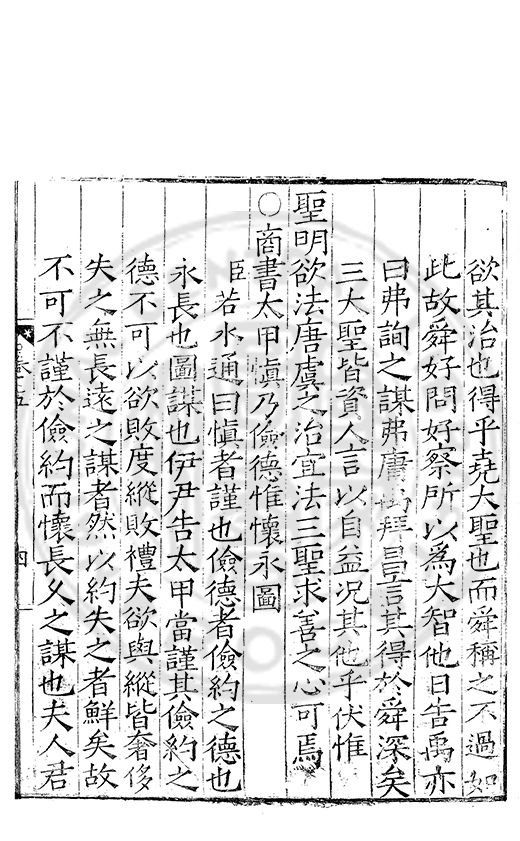 欲其治也得乎堯大聖也而舜稱之不過如
此故舜好問好察所以為大智他日告禹亦
曰弗詢之謀弗庸禹拜昌言其得於舜深矣
三大聖皆資人言以自益况其他乎伏惟
聖明欲法唐虞之治宜法三聖求善之心可焉
○商書太甲慎乃儉德惟懷永圖
臣若水通曰慎者謹也儉德者儉約之德也
永長也圖謀也伊尹告太甲當謹其儉約之
德不可以欲敗度縱敗禮夫欲與縱皆奢侈
失之無長遠之謀者然以約失之者鮮矣故
不可不謹於儉約而懷長久之謀也夫人君
卷之五
四